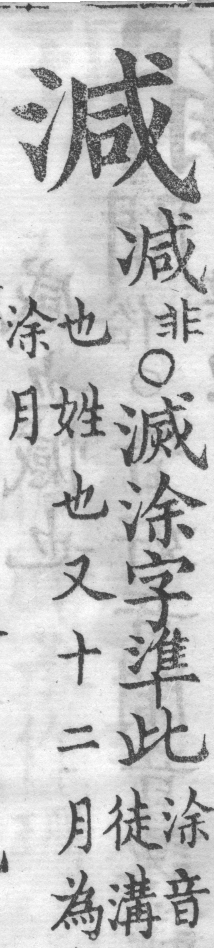 減
减非○滅涂字準此涂音徒溝
也姓也又十二月為
涂月